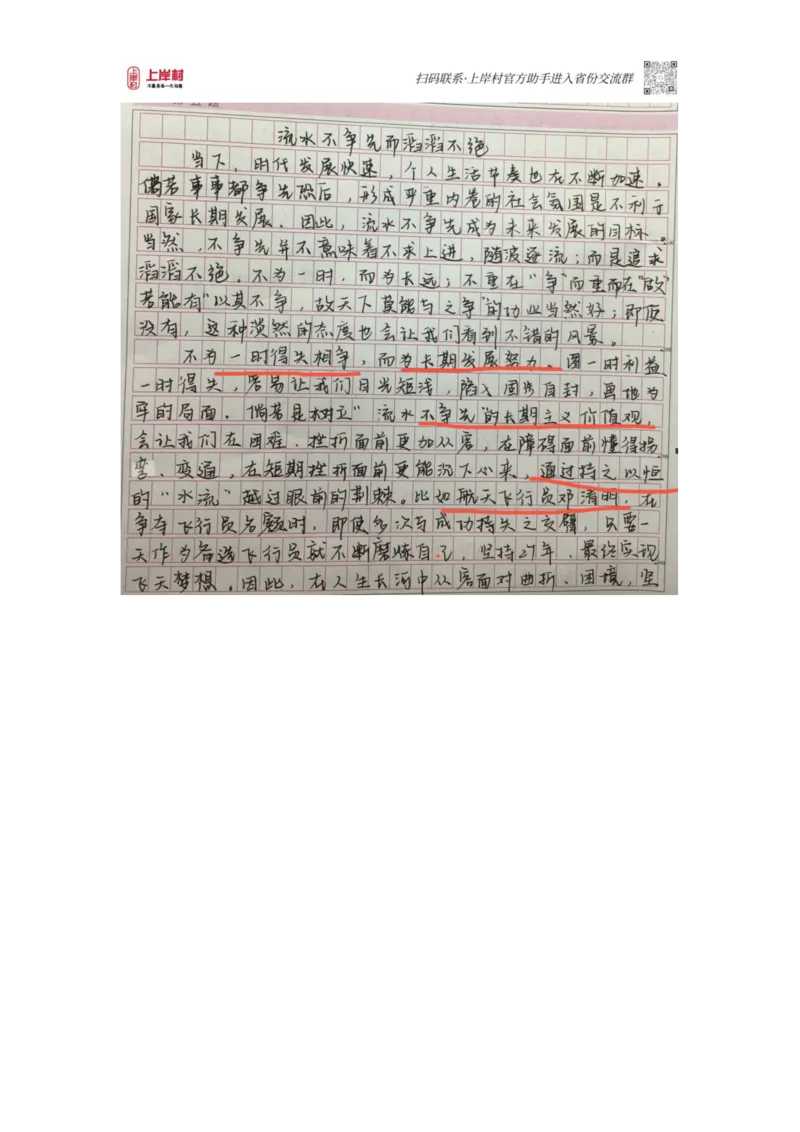 上岸村
上岸村
不辜负每一代勾魂
扫码联系·上岸村官方助手进入省份交流群
流水不争先而滔滔不绝
当下,时代发展快速,个人生活节奏也在不断加速。
倘若事事都争先恐后,形成严重内卷的社会氛围是不利于
国家长期发展。因此,流水不争先成为未来发展的目标。
当然,不争先并不意味着不求上进,随波逐流;而是追求
滔滔不绝,不为一时,而为长远;不重在“争”而重而在“故”
若能有“以其不争,故天下莫能与之争”的功业当然好;即便
没有,这种淡然的态度也会让我们看到不错的风景。
不为一时得失相争,而为长期发展努力。图一时利益
一时得失,容易让我们目光短浅,陷入固步自封,画地为
牢的局面。倘若是树立“流水不争先”的长期主义价值观,
会让我们在困难、挫折面前更加从容,在障碍面前懂得拐
弯、变通,在短期挫折面前更能沉下心来,通过持之以恒
的“水流”越过眼前的荆棘。比如航天飞行员邓清明,在
争夺飞行员名额时,即使多次与成功持失之交臂,只要一
天作为备选飞行员就不断磨炼自己,坚持27年,最终实现
飞天梦想。因此,在人生长河中从容面对曲折、困境,坚